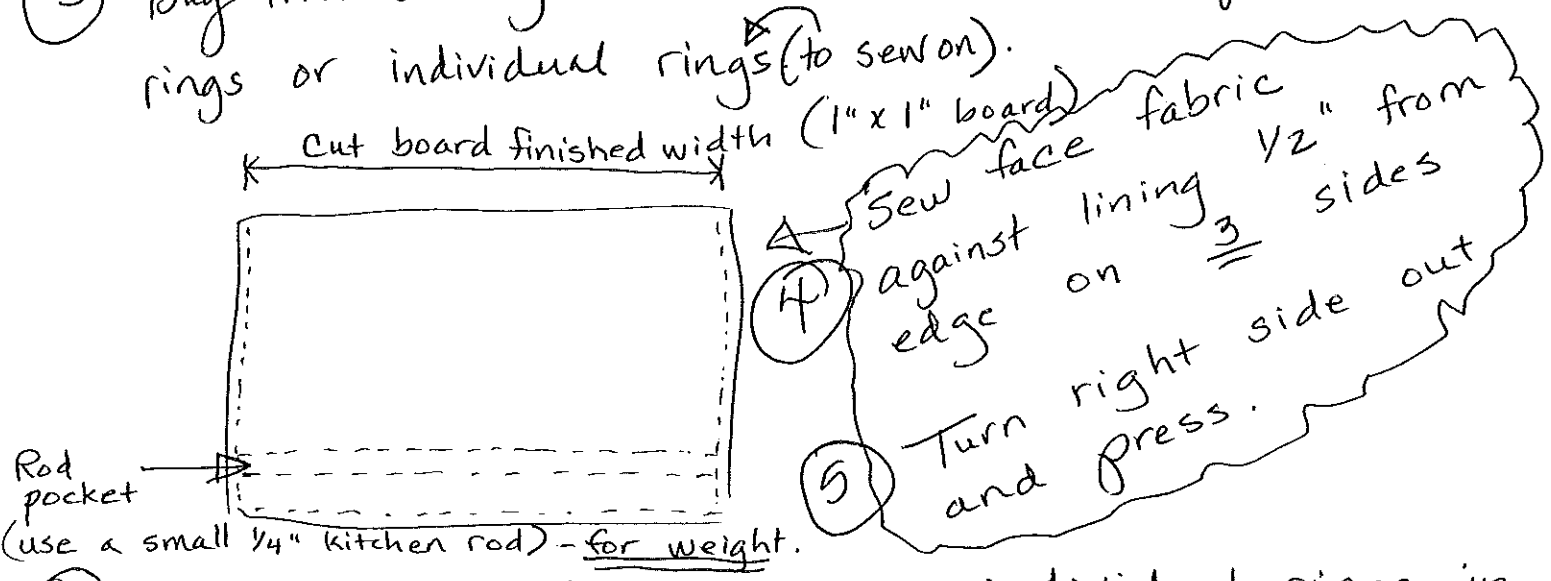 Buy
rings or individual rings (to sew on).
Cut board finished width (1" x 1" board)
Sew face fabric
against lining 1/2" from
edge on 3 sides
4
5
Turn right side out
and press.
Rod
pocket
(use a small 1/4" kitchen rod) - for weight.
individual rings